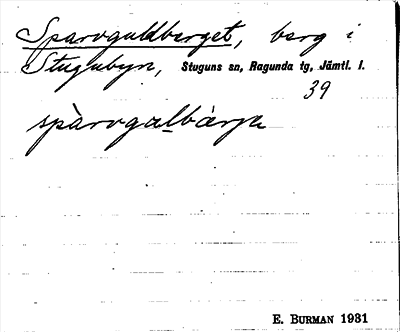 Sparvguldberget, berg i
Stugubyn, Stuguns sn, Ragunda tg, Jämtl. l.
39
spàrvgalbàrje
E. BURMAN 1931